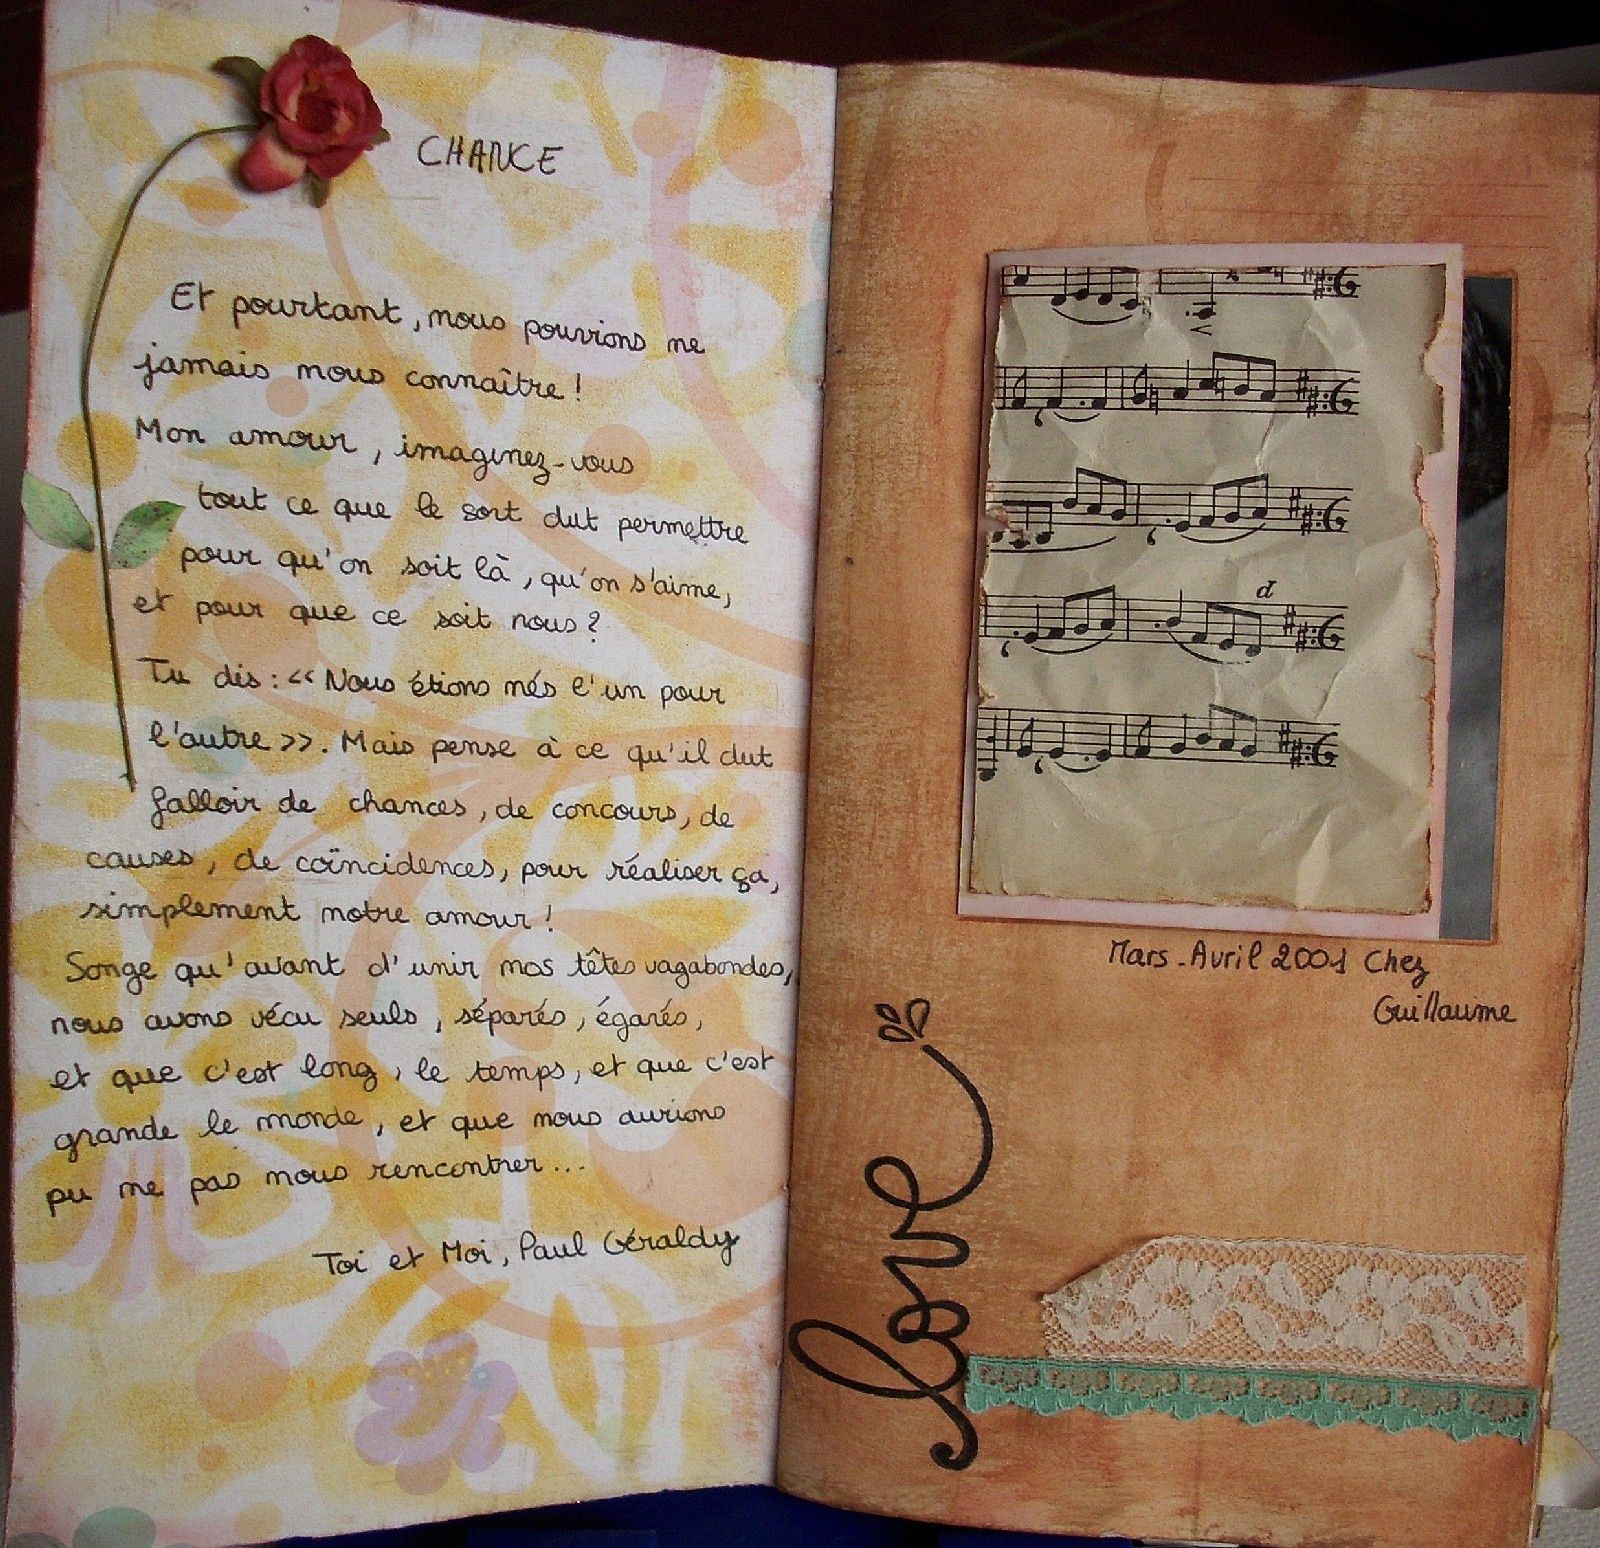 CHANCE
Et pourtant, nous pouvions ne
jamais nous connaître !
Mon amour, imaginez-vous
tout ce que le sort dut permettre
pour qu'on soit là, qu'on s'aime,
et pour que ce soit nous ?
Tu dis : << Nous étions nés l'un pour
l'autre >>. Mais pense à ce qu'il dut
falloir de chances, de concours, de
causes, de coïncidences, pour réaliser ça,
simplement notre amour !
Songe qu'avant d'unir nos têtes vagabondes,
nous avons vécu seuls, séparés, égarés,
et que c'est long, le temps, et que c'est
grande le monde, et que nous aurions
pu ne pas nous rencontrer...
Toi et Moi, Paul Géraldy
p
Mars - Avril 2001 Chez
Guillaume
love